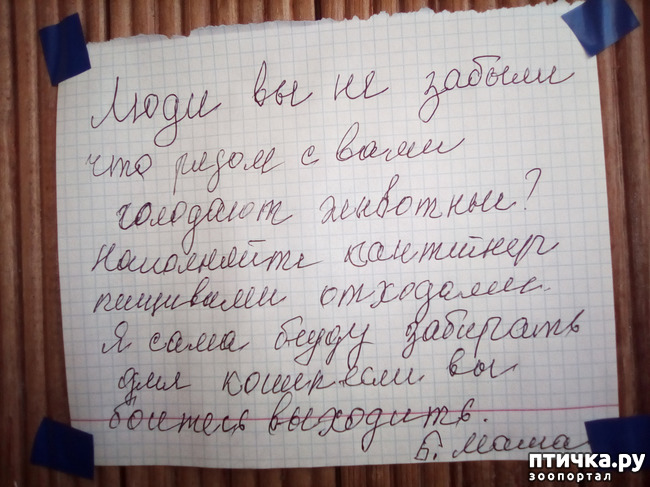 Люди вы не забыли
что рядом с вами
голодают животные?
Наполняйте контейнер
пищивыми отходами.
Я сама буду забирать
для кошек если вы
боитесь выходить.
Б. Маша
птичка.ру
зоопортал